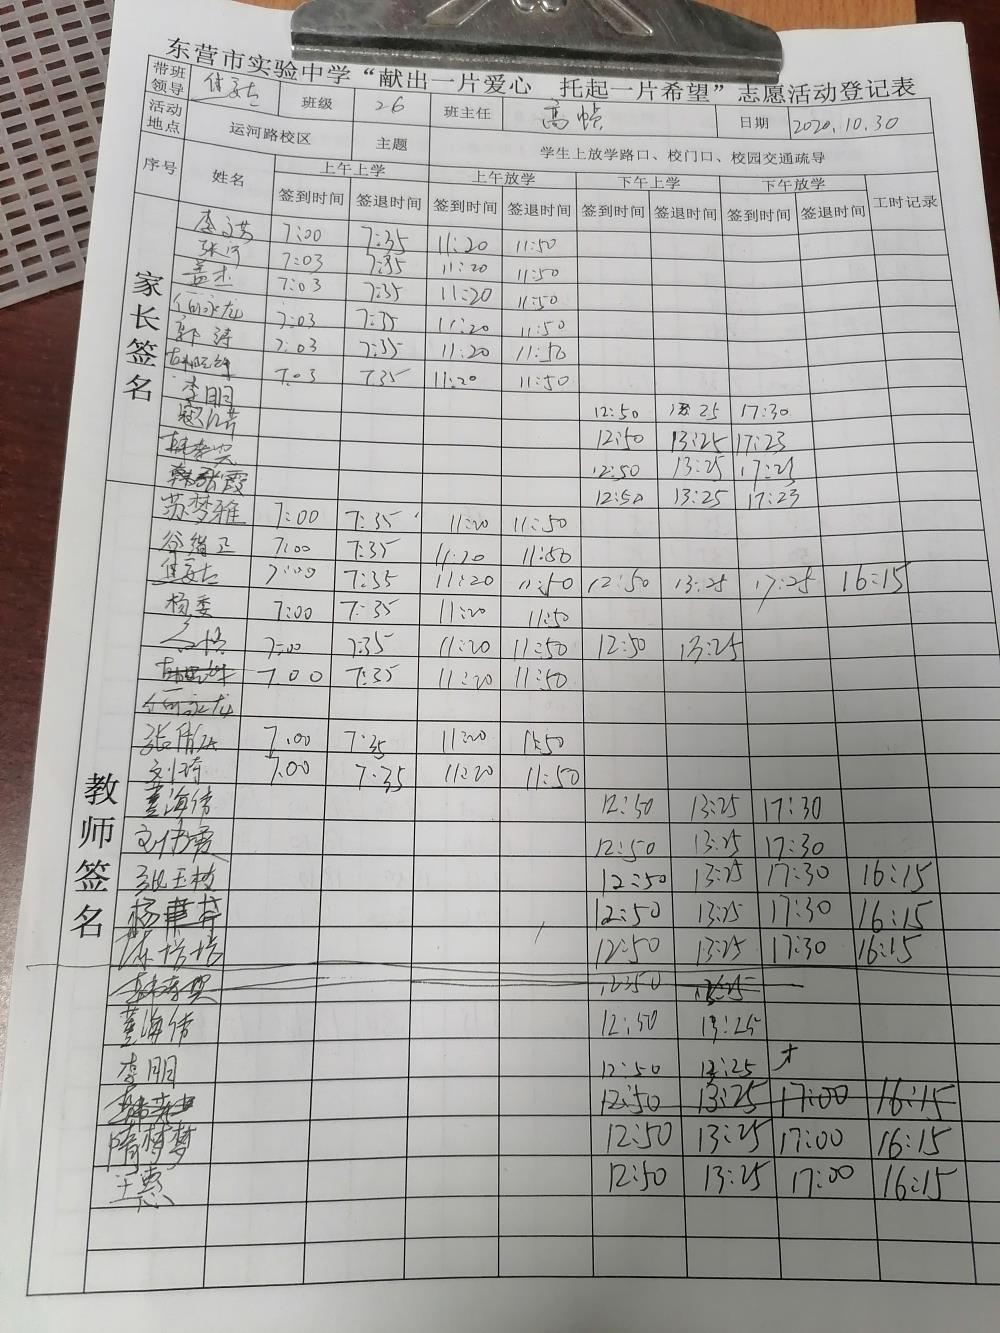 东营市实验中学“献出一片爱心 托起一片希望”志愿活动登记表
带班领导 班级 26 班主任 高 日期 2020.10.30
活动地点 运河路校区 主题 学生上放学路口、校门口、校园交通疏导
序号 姓名 上午上学 上午放学 下午上学 下午放学 工时记录
签到时间 签退时间 签到时间 签退时间 签到时间 签退时间 签到时间 签退时间
家长签名
李 7:00 7:35 11:20 11:50
张 7:03 7:35 11:20 11:50
盖杰 7:03 7:35 11:20 11:50
何永龙 7:03 7:35 11:20 11:50
郭涛 7:03 7:35 11:20 11:50
7:03 7:35 11:20 11:50
李明 12:50 13:25 17:30
12:50 13:25 17:23
韩 12:50 13:25 17:23
韩 霞 12:50 13:25 17:23
教师签名
苏梦雅 7:00 7:35 11:20 11:50
谷 卫 7:00 7:35 11:20 11:50
7:00 7:35 11:20 11:50 12:50 13:25 17:25 16:15
杨委 7:00 7:35 11:20 11:50
7:00 7:35 11:20 11:50 12:50 13:25
7:00 7:35 11:20 11:50
何永龙
张 7:00 7:35 11:20 11:50
刘琦 7:00 7:35 11:20 11:50
董海伟 12:50 13:25 17:30
刘伟霞 12:50 13:25 17:30
张玉枚 12:50 13:25 17:30 16:15
杨 12:50 13:25 17:30 16:15
陈培培 12:50 13:25 17:30 16:15
12:50 13:25
董海伟 12:50 13:25
李明 12:50 13:25
12:50 13:25 17:00 16:15
隋梦梦 12:50 13:25 17:00 16:15
王惠 12:50 13:25 17:00 16:15